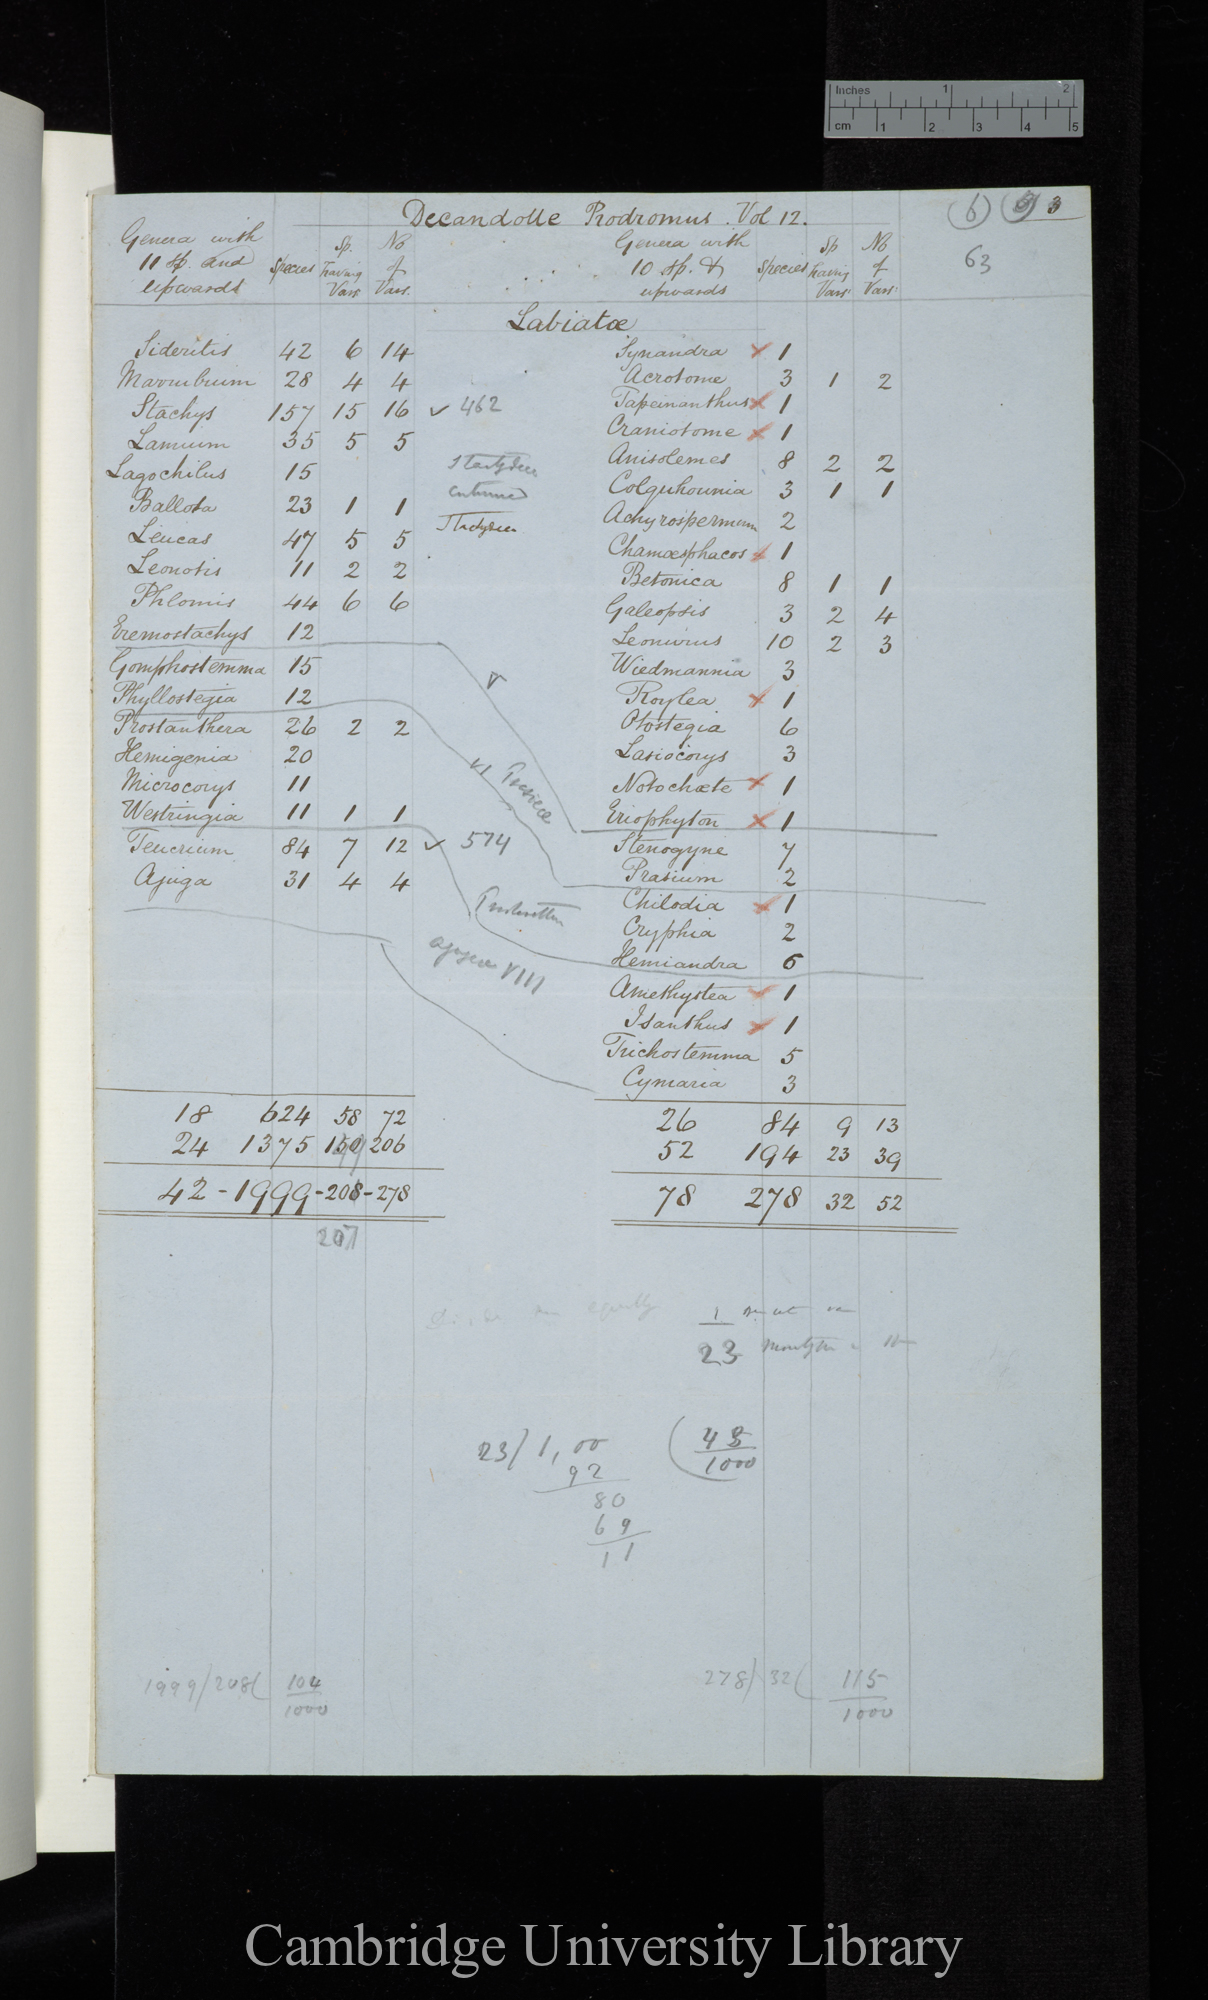 Inches 1 2
cm 1 2 3 4 5
Decandolle Prodromus. Vol 12.
(6) 3
63
Genera with 11 sp. and upwards Species Sp. having Vars No of Vars.
Genera with 10 sp. & upwards Species Sp having Vars No of Vars
Labiatæ
Sideritis 42 6 14
Marrubium 28 4 4
Stachys 157 15 16 ✓ 462
Lamium 35 5 5
Lagochilus 15
Stachydeæ
Ballota 23 1 1
Stachydeæ
Leucas 47 5 5
Leonotis 11 2 2
Phlomis 44 6 6
Eremostachys 12
Gomphostemma 15
V
Phyllostegia 12
Prostanthera 26 2 2
Hemigenia 20
VI Prasieæ
Microcorys 11
Westringia 11 1 1
Teucrium 84 7 12 ✓ 574
Ajuga 31 4 4
VIII
18 624 58 72
24 1375 150 206
42 - 1999 - 208 - 278
207
Synandra x 1
Acrotome 3 1 2
Tapeinanthus x 1
Craniotome x 1
Anisolemes 8 2 2
Colquhounia 3 1 1
Achyrospermum 2
Chamæsphacos x 1
Betonica 8 1 1
Galeopsis 3 2 4
Leonurus 10 2 3
Wiedmannia 3
Roylea x 1
Otostegia 6
Lasiocorys 3
Notochæte x 1
Eriophyton x 1
Stenogyne 7
Prasium 2
Chilodia x 1
Cryphia 2
Hemiandra 6
Amethystea x 1
Isanthus x 1
Trichostemma 5
Cymaria 3
26 84 9 13
52 194 23 39
78 278 32 52
1
23
23/1,00 (43
92 1000
80
69
11
1999/208( 104
1000
278/32( 115
1000
Cambridge University Library